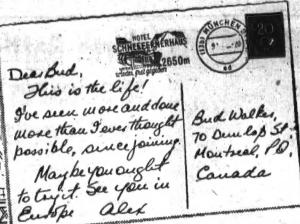 HOTEL
SCHNEEFERNERHAUS
2650m
MÜNCHEN
20
Dear Bud,
This is the life!
I've seen more and done
more than I ever thought
possible, since joining.
Maybe you ought
to try it. See you in
Europe Alex
Bud Walker,
70 Dunlop St.
Montreal, P.Q.
Canada